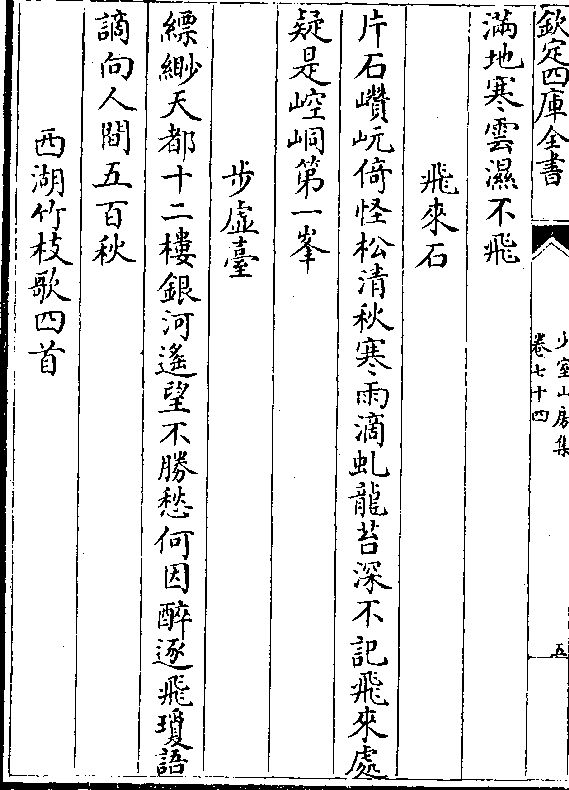 欽定四庫全書
少室山房集
卷七十四
五
滿地寒雲濕不飛
飛來石
片石巑岏倚怪松清秋寒雨滴虬龍苔深不記飛來處
疑是崆峒第一峯
步虚臺
縹緲天都十二樓銀河遙望不勝愁何因醉逐飛瓊語
謫向人間五百秋
西湖竹枝歌四首